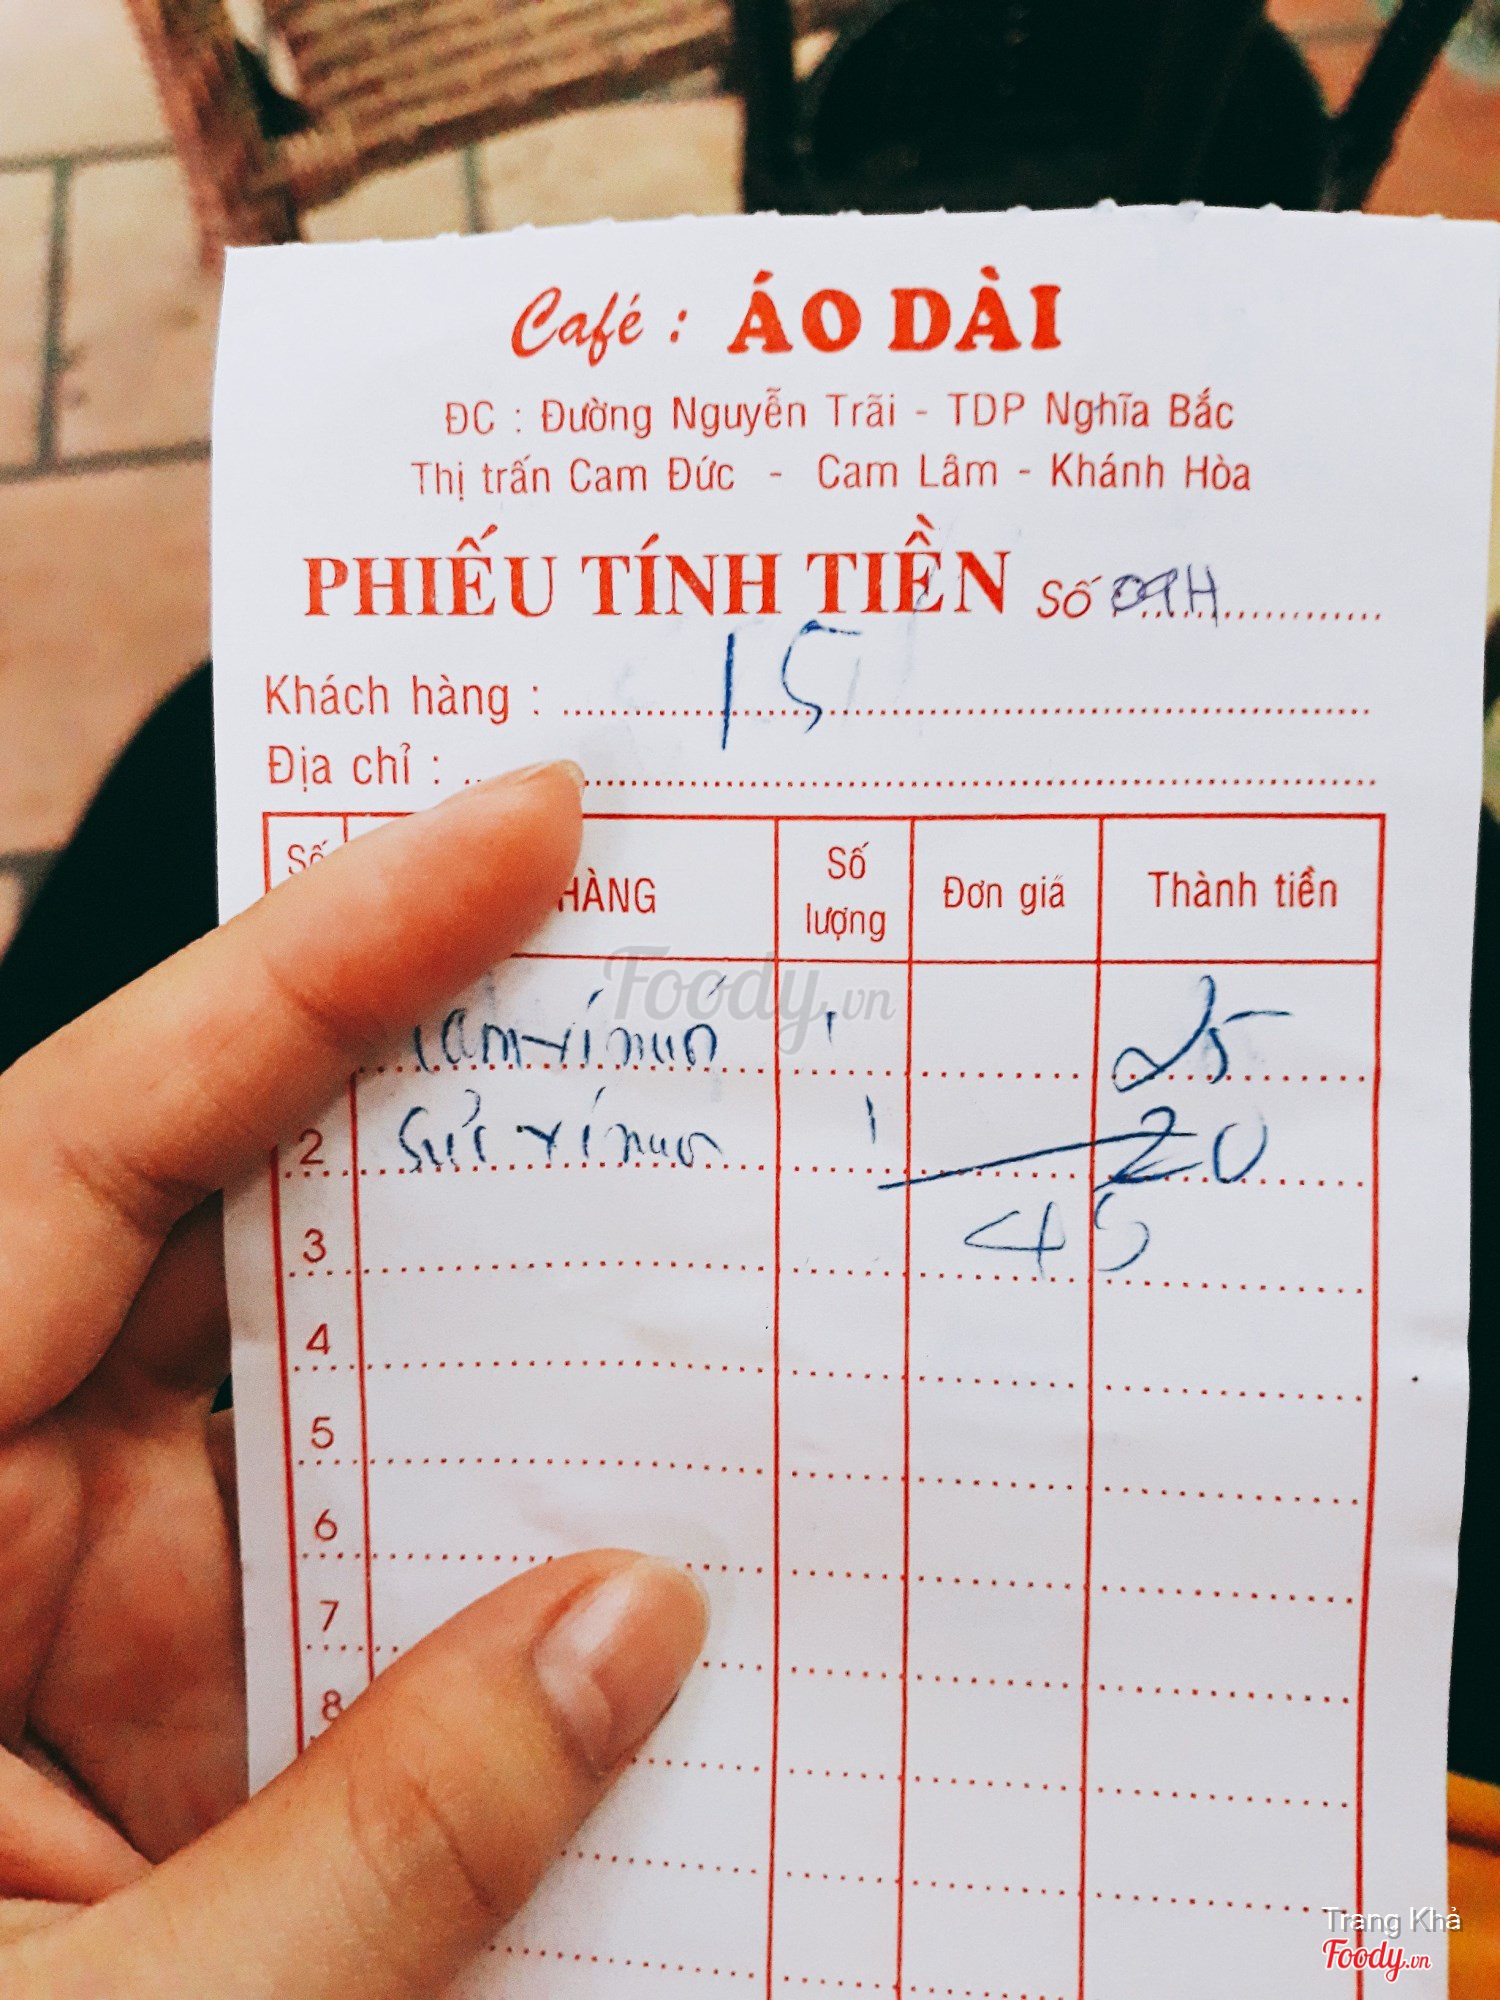 Café : ÁO DÀI
ĐC : Đường Nguyễn Trãi - TDP Nghĩa Bắc
Thị trấn Cam Đức - Cam Lâm - Khánh Hòa
PHIẾU TÍNH TIỀN Số 09H
Khách hàng : 15
Địa chỉ :
Số HÀNG Số lượng Đơn giá Thành tiền
Foody.vn
cam xí muội 1 25
2 Sửu xí muội 1 20
3 45
4
5
6
7
8
Trang Khả
Foody.vn